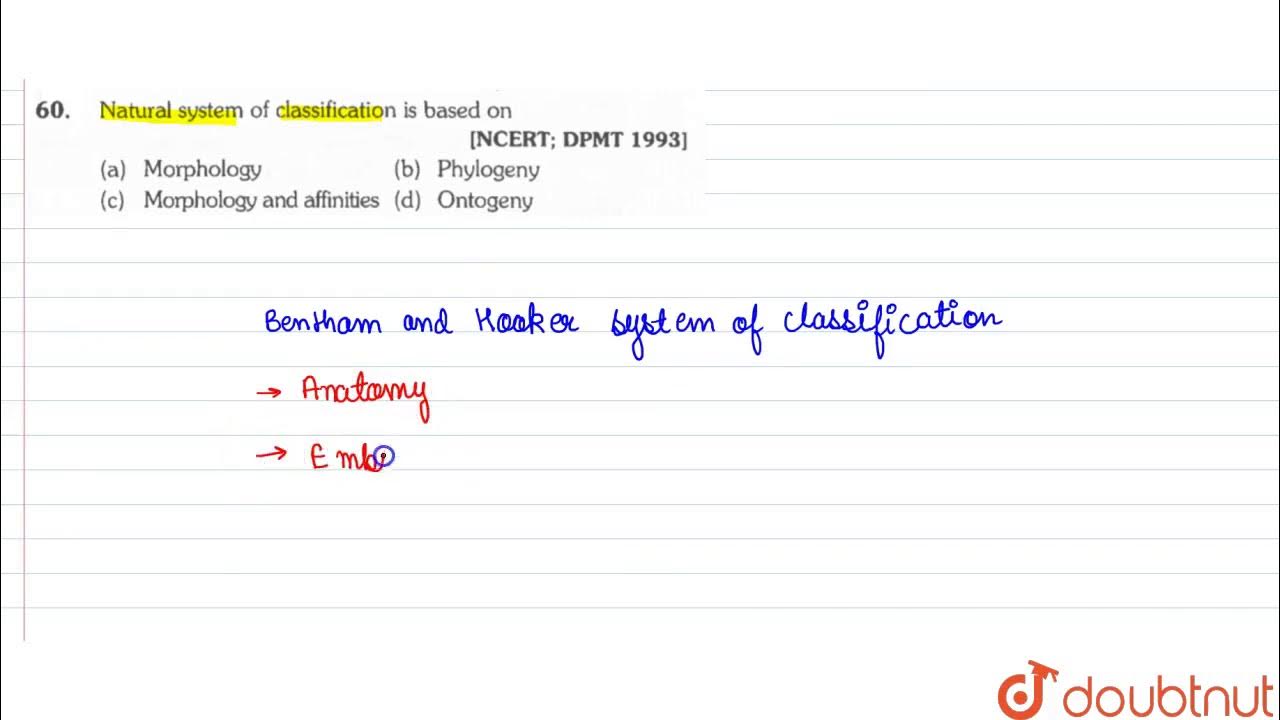 60. Natural system of classification is based on
[NCERT; DPMT 1993]
(a) Morphology (b) Phylogeny
(c) Morphology and affinities (d) Ontogeny
Bentham and Hooker system of classification
→ Anatomy
→ Emb
doubtnut